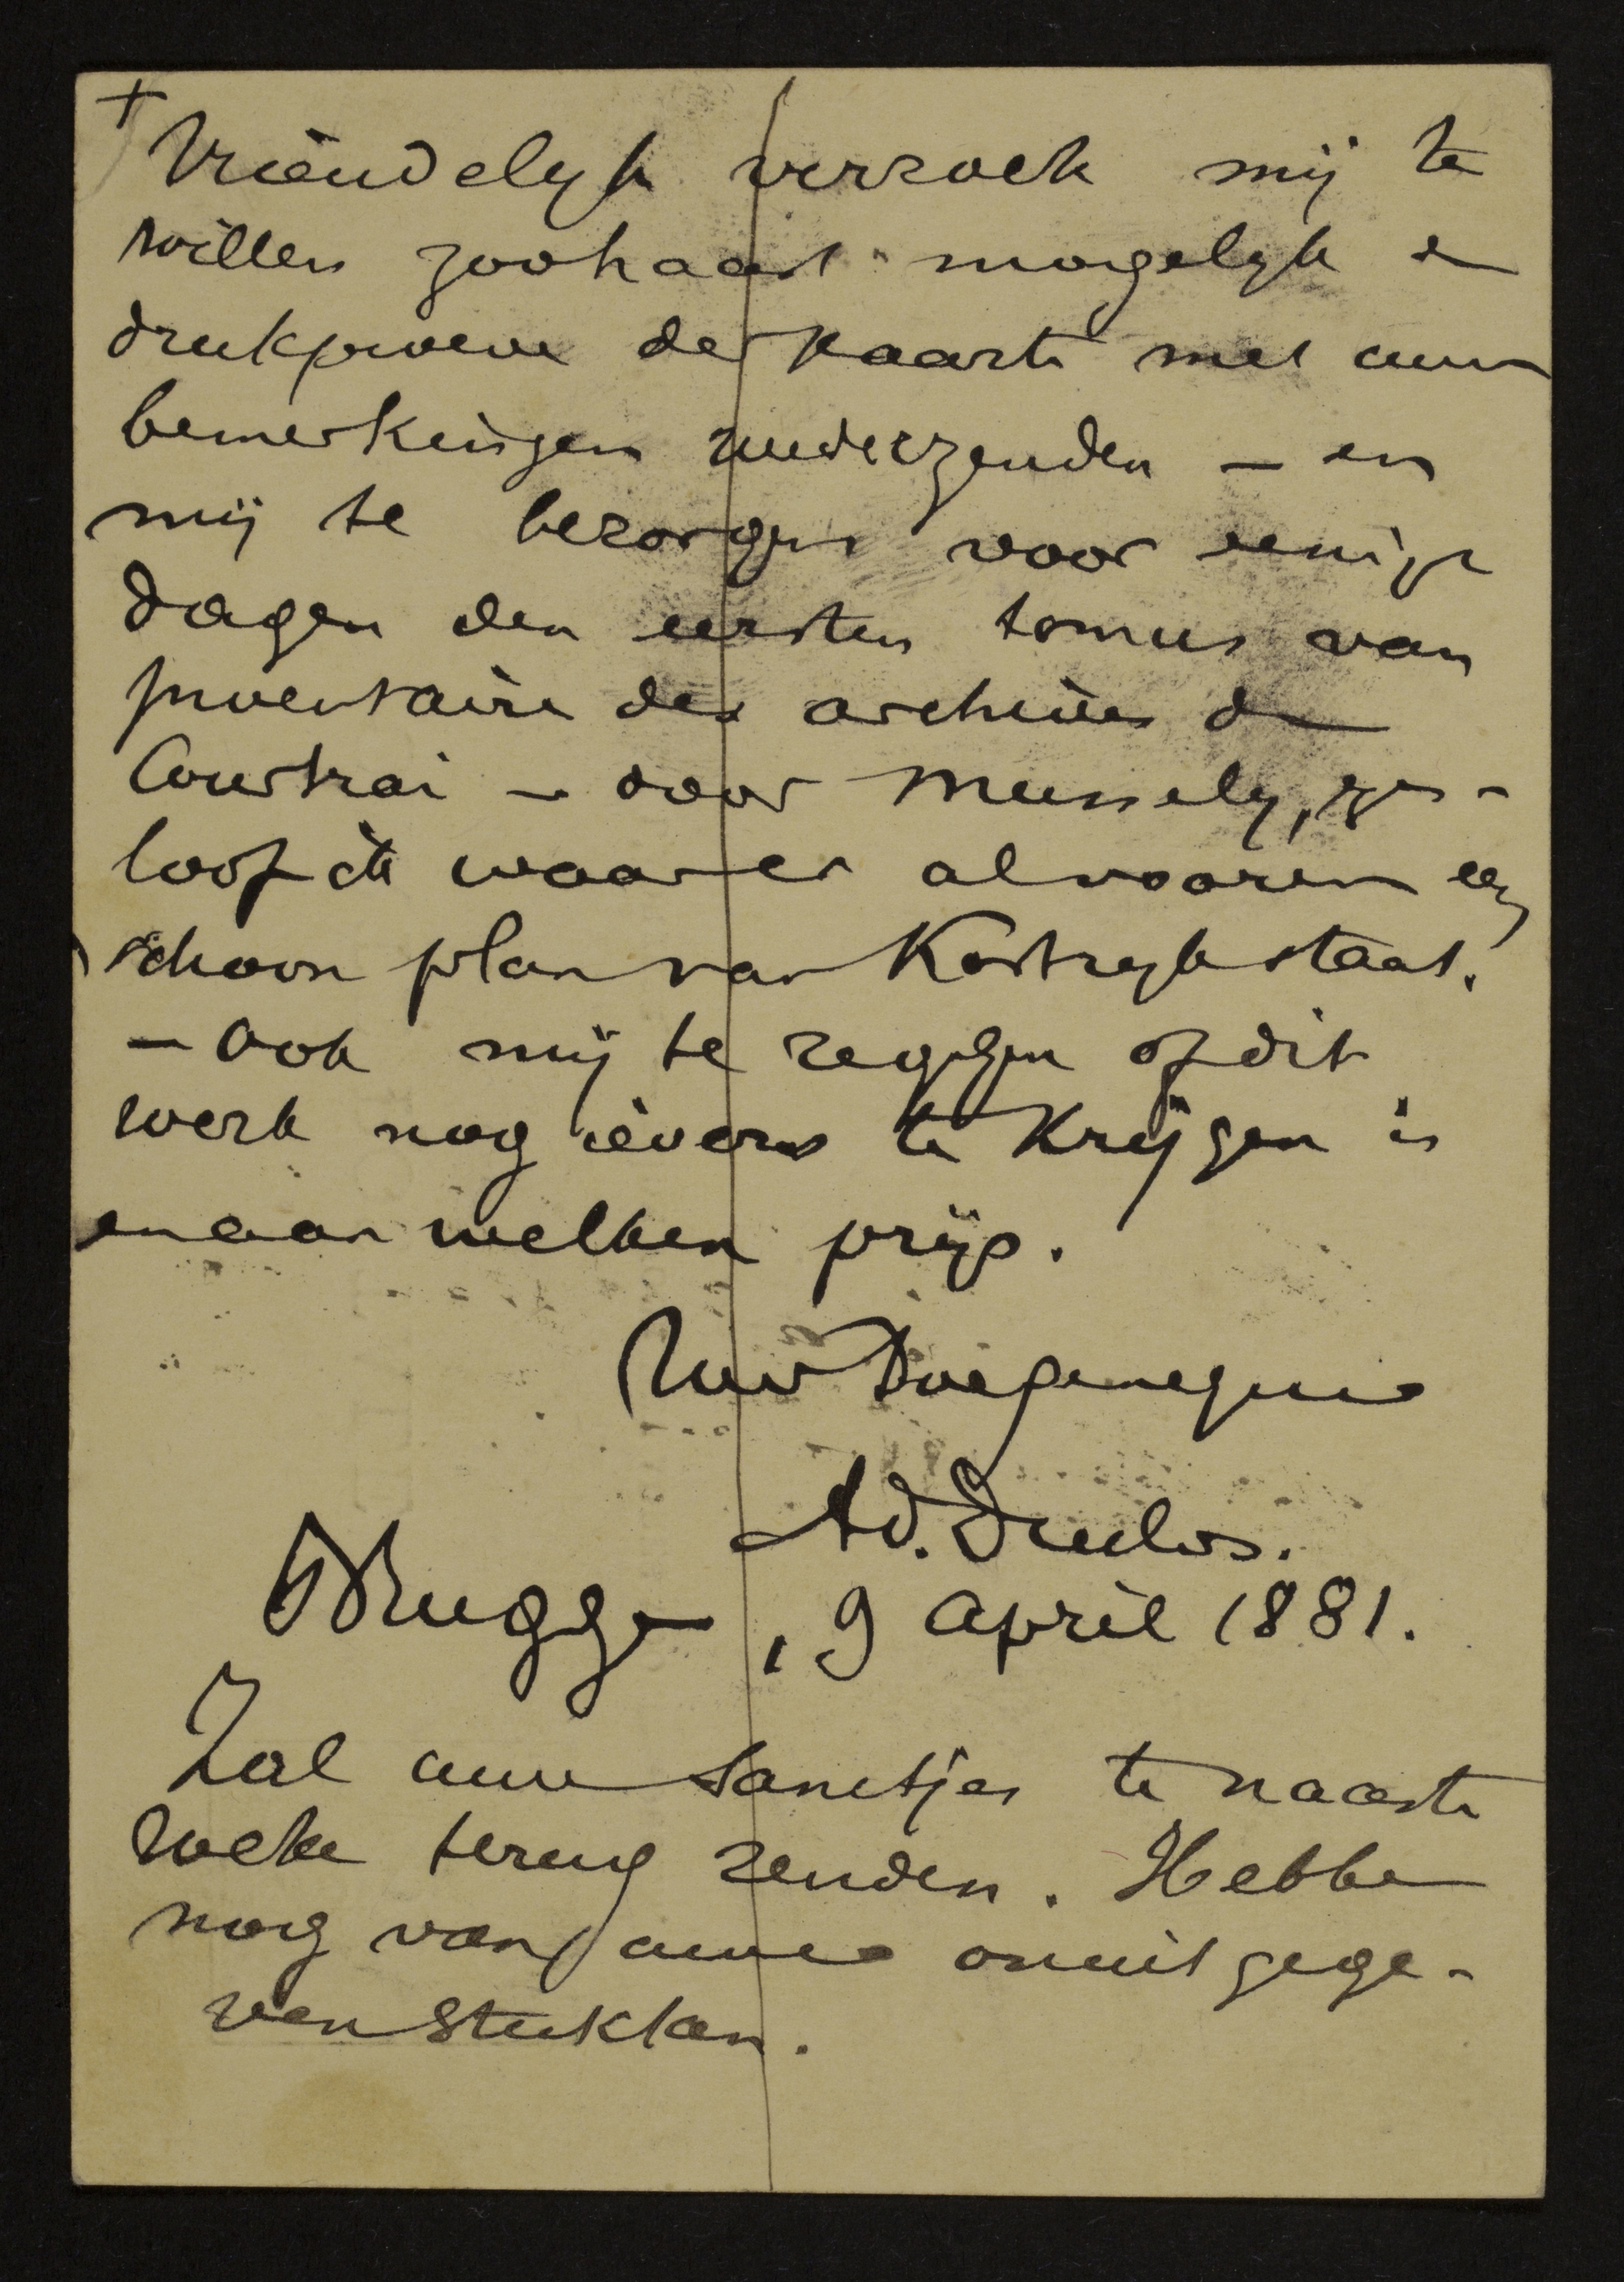 +
Vriendelyk verzoek mij te
willen zoohaast mogelyk de
drukproeve der kaarte met uwe
bemerkingen wederzenden – en
mij te bezorgen voor eenige
dagen den eersten tomus van
Inventaire des archives de
Courtrai – door Mussely, ge-
loof ik waarer alvooren een
schoon plan van Kortryk staat.
– Ook mij te zeggen of dit
werk nog ievers te krijgen is
en aan welken prijs.
Uw Toegenegene
Ad. Duclos.
Brugge, 9 april 1881.
Zal uwe Sanctjes te naaste
weke terug zenden. Hebbe
nog van uwe onuitgege-
ven stukken.